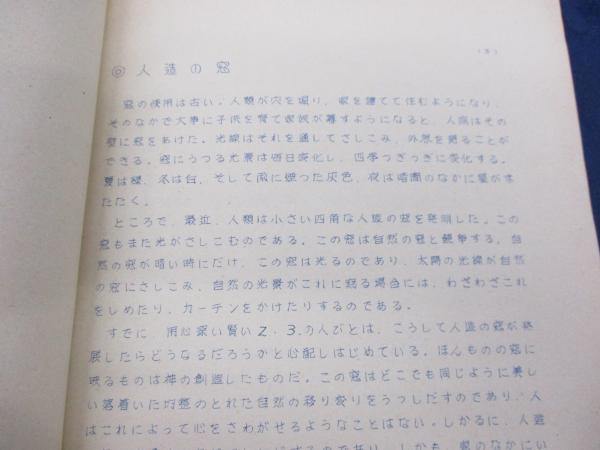 (3)
◎人造の窓
窓の使用は古い。人類が穴を堀り、家を建てて住むようになり、
そのなかで大事に子供を育て家族が暮すようになると、人類はその
壁に窓をあけた。光線はそれを通してさしこみ、外界を見ることが
できる。窓にうつる光景は毎日変化し、四季つぎつぎに変化する。
夏は緑、冬は白、そして雨に煙った灰色、夜は暗闇のなかに星がま
たたく。
ところで、最近、人類は小さい四角な人造の窓を発明した。この
窓もまた光がさしこむのである。この窓は自然の窓と競争する。自
然の窓が暗い時にだけ、この窓は光るのであり、太陽の光線が自然
の窓にさしこみ、自然の光景がこれに写る場合には、わざわざこれ
をしめたり、カーテンをかけたりするのである。
すでに 用心深い賢い2・3の人びとは、こうして人造の窓が発
展したらどうなるだろうかと心配しはじめている。ほんものの窓に
映るものは神の創造したものだ。この窓はどこでも同じように美し
い落着いた均整のとれた自然の移り変りをうつしだすのであり、人
はこれによって心をさわがせるようなことはない。しかるに、人造
するのであり、しかも、家のなかにい